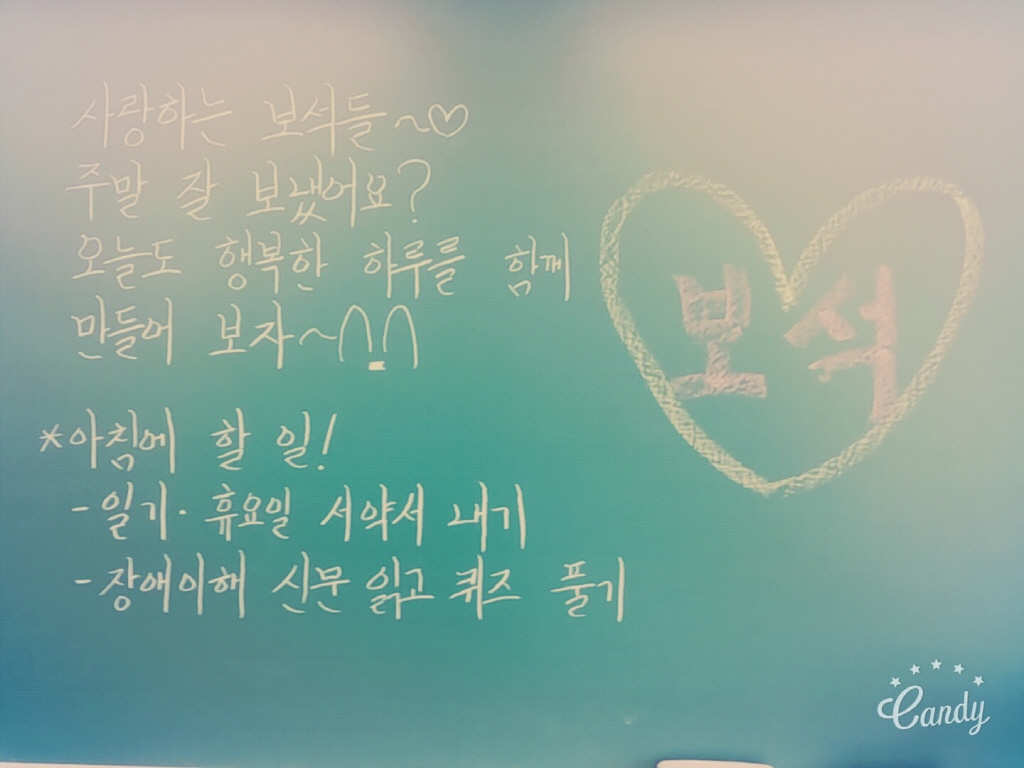 사랑하는 보석들~♡
주말 잘 보냈어요?
오늘도 행복한 하루를 함께
만들어 보자~∩.∩
*아침에 할 일!
-일기·휴요일 서약서 내기
-장애이해 신문 읽고 퀴즈 풀기
보석
Candy